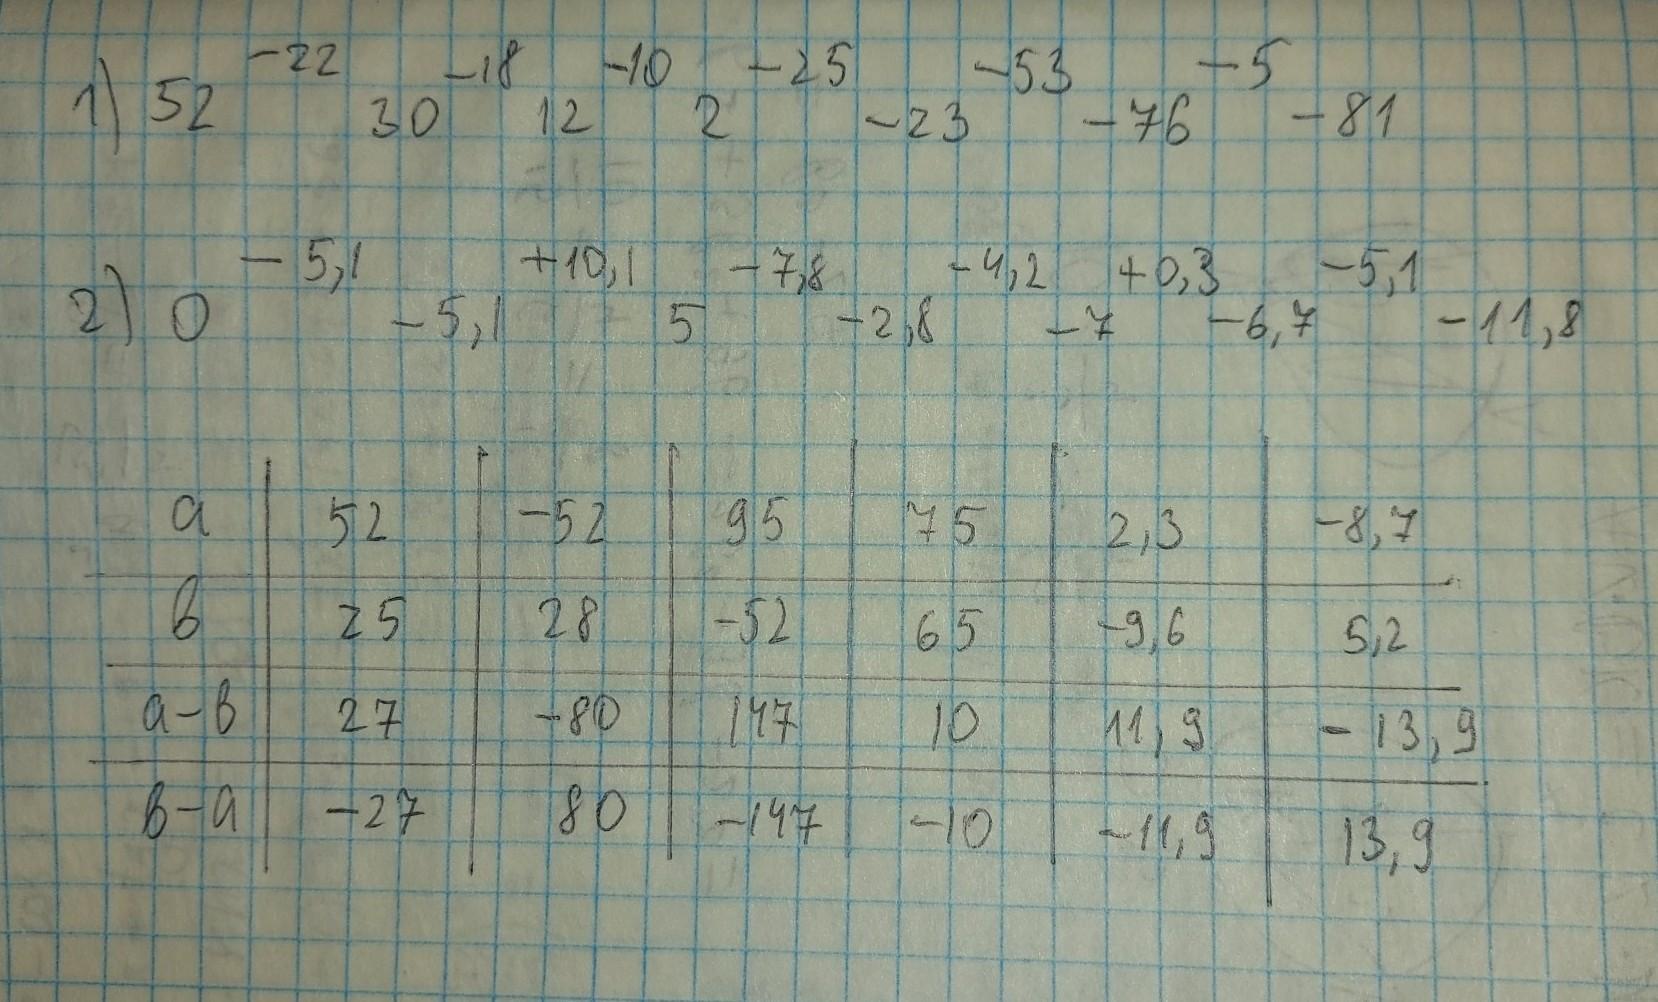 -22 -18 -10 -25 -53 -5
1) 52 30 12 2 -23 -76 -81
-5,1 +10,1 -7,8 -4,2 +0,3 -5,1
2) 0 -5,1 5 -2,8 -7 -6,7 -11,8
а 52 -52 95 75 2,3 -8,7
в 25 28 -52 65 -9,6 5,2
а-в 27 -80 147 10 11,9 -13,9
в-а -27 80 -147 -10 -11,9 13,9